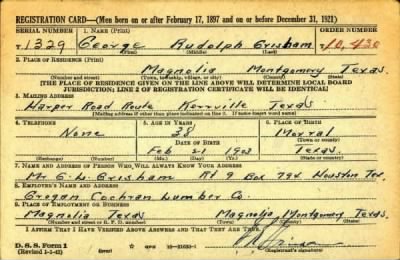 REGISTRATION CARD—(Men born on or after February 17, 1897 and on or before December 31, 1921)
SERIAL NUMBER 1. NAME (Print) ORDER NUMBER
T 1329 George Rudolph Grisham 10,430
(First) (Middle) (Last)
2. PLACE OF RESIDENCE (Print)
Magnolia Montgomery Texas
(Number and street) (Town, township, village, or city) (County) (State)
[THE PLACE OF RESIDENCE GIVEN ON THE LINE ABOVE WILL DETERMINE LOCAL BOARD
JURISDICTION; LINE 2 OF REGISTRATION CERTIFICATE WILL BE IDENTICAL]
3. MAILING ADDRESS
Harper Road Route Kerrville Texas
[Mailing address if other than place indicated on line 2. If same insert word same]
4. TELEPHONE 5. AGE IN YEARS 6. PLACE OF BIRTH
None 38 Morral
DATE OF BIRTH (Town or county)
Feb 21 1903 Texas
(Exchange) (Number) (Mo.) (Day) (Yr.) (State or country)
7. NAME AND ADDRESS OF PERSON WHO WILL ALWAYS KNOW YOUR ADDRESS
Mr G. W. Grisham Rt 9 Box 794 Houston Tex.
8. EMPLOYER'S NAME AND ADDRESS
Grogan Cochran Lumber Co.
9. PLACE OF EMPLOYMENT OR BUSINESS
Magnolia Texas Magnolia Montgomery Texas
(Number and street or R. F. D. number) (Town) (County) (State)
I AFFIRM THAT I HAVE VERIFIED ABOVE ANSWERS AND THAT THEY ARE TRUE.
D. S. S. Form 1
(Revised 1-1-42) (over)